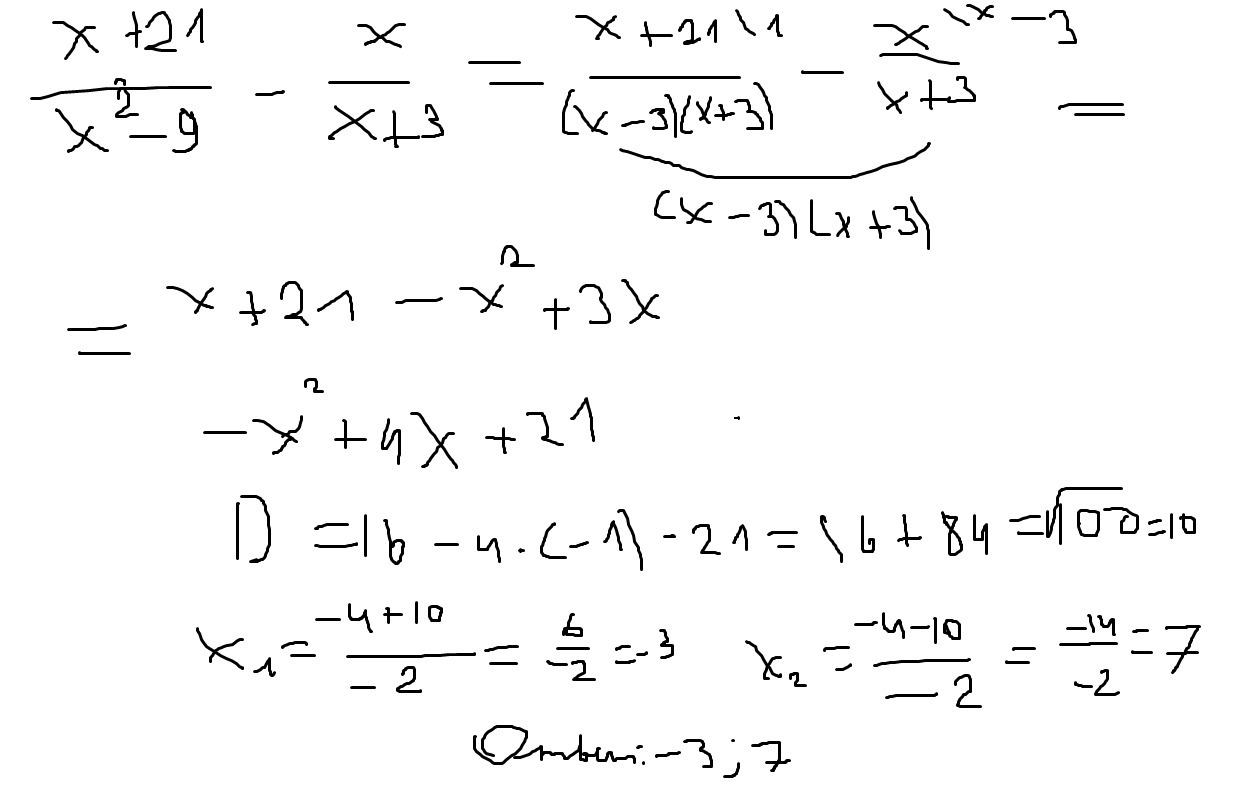 (x+21)/(x²-9) - x/(x+3) = (x+21\1)/((x-3)(x+3)) - (x\x-3)/(x+3) =
(x-3)(x+3)
= x+21-x²+3x
-x²+4x+21
D = 16-4·(-1)·21 = 16+84 = √100 = 10
x₁ = (-4+10)/(-2) = 6/(-2) = -3 x₂ = (-4-10)/(-2) = (-14)/(-2) = 7
Ответ: -3; 7